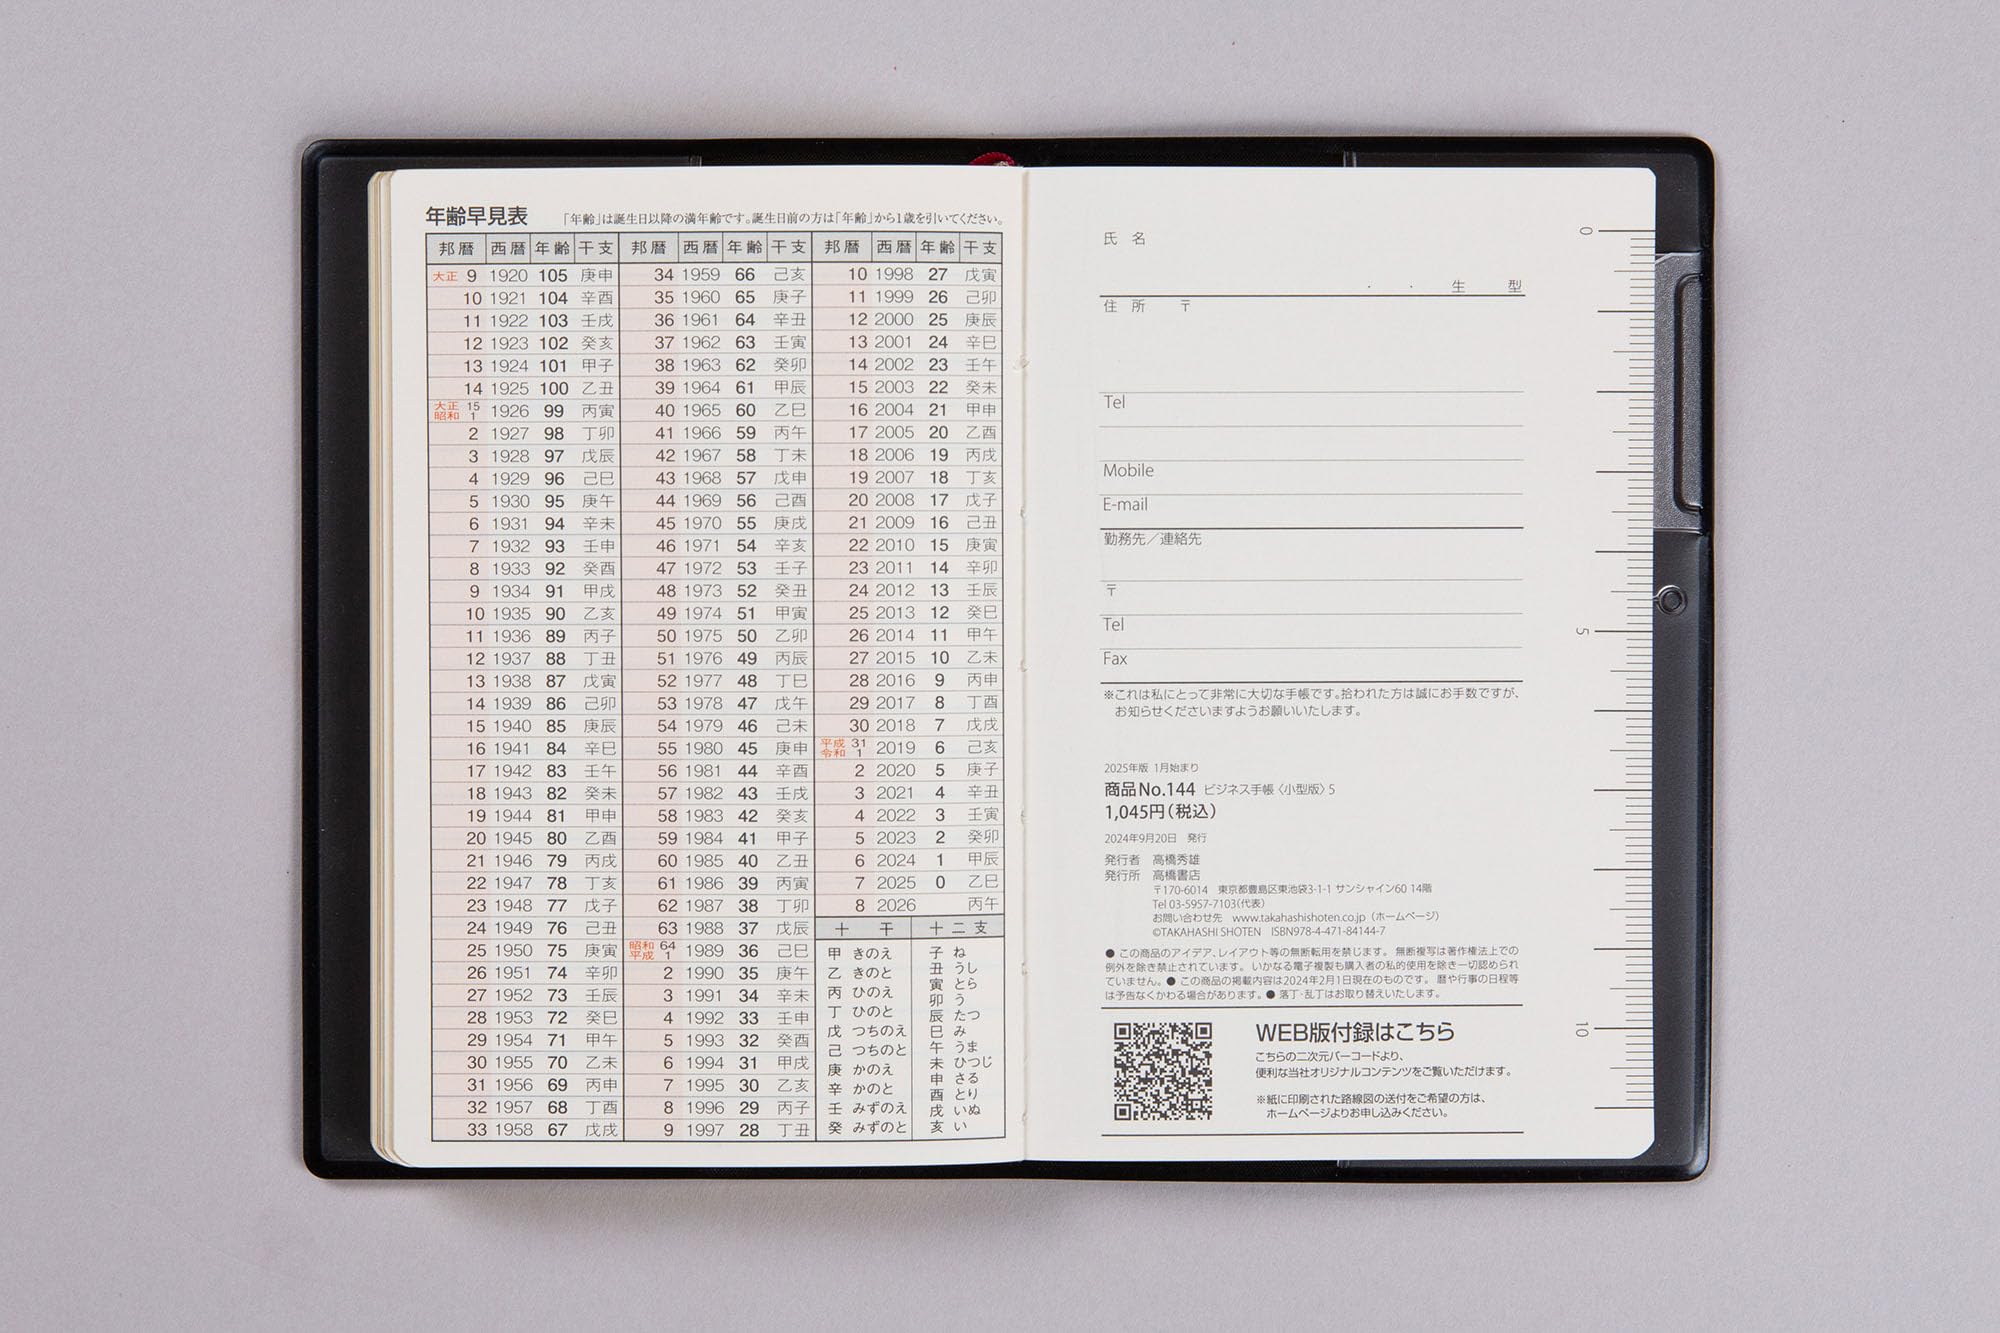 年齢早見表 「年齢」は誕生日以降の満年齢です。誕生日前の方は「年齢」から1歳を引いてください。
邦暦 西暦 年齢 干支 邦暦 西暦 年齢 干支 邦暦 西暦 年齢 干支
大正 9 1920 105 庚申 34 1959 66 己亥 10 1998 27 戊寅
10 1921 104 辛酉 35 1960 65 庚子 11 1999 26 己卯
11 1922 103 壬戌 36 1961 64 辛丑 12 2000 25 庚辰
12 1923 102 癸亥 37 1962 63 壬寅 13 2001 24 辛巳
13 1924 101 甲子 38 1963 62 癸卯 14 2002 23 壬午
14 1925 100 乙丑 39 1964 61 甲辰 15 2003 22 癸未
大正 15 昭和 1 1926 99 丙寅 40 1965 60 乙巳 16 2004 21 甲申
2 1927 98 丁卯 41 1966 59 丙午 17 2005 20 乙酉
3 1928 97 戊辰 42 1967 58 丁未 18 2006 19 丙戌
4 1929 96 己巳 43 1968 57 戊申 19 2007 18 丁亥
5 1930 95 庚午 44 1969 56 己酉 20 2008 17 戊子
6 1931 94 辛未 45 1970 55 庚戌 21 2009 16 己丑
7 1932 93 壬申 46 1971 54 辛亥 22 2010 15 庚寅
8 1933 92 癸酉 47 1972 53 壬子 23 2011 14 辛卯
9 1934 91 甲戌 48 1973 52 癸丑 24 2012 13 壬辰
10 1935 90 乙亥 49 1974 51 甲寅 25 2013 12 癸巳
11 1936 89 丙子 50 1975 50 乙卯 26 2014 11 甲午
12 1937 88 丁丑 51 1976 49 丙辰 27 2015 10 乙未
13 1938 87 戊寅 52 1977 48 丁巳 28 2016 9 丙申
14 1939 86 己卯 53 1978 47 戊午 29 2017 8 丁酉
15 1940 85 庚辰 54 1979 46 己未 30 2018 7 戊戌
16 1941 84 辛巳 55 1980 45 庚申 平成 31 令和 1 2019 6 己亥
17 1942 83 壬午 56 1981 44 辛酉 2 2020 5 庚子
18 1943 82 癸未 57 1982 43 壬戌 3 2021 4 辛丑
19 1944 81 甲申 58 1983 42 癸亥 4 2022 3 壬寅
20 1945 80 乙酉 59 1984 41 甲子 5 2023 2 癸卯
21 1946 79 丙戌 60 1985 40 乙丑 6 2024 1 甲辰
22 1947 78 丁亥 61 1986 39 丙寅 7 2025 0 乙巳
23 1948 77 戊子 62 1987 38 丁卯 8 2026 丙午
24 1949 76 己丑 63 1988 37 戊辰
25 1950 75 庚寅 昭和 64 平成 1 1989 36 己巳
26 1951 74 辛卯 2 1990 35 庚午
27 1952 73 壬辰 3 1991 34 辛未
28 1953 72 癸巳 4 1992 33 壬申
29 1954 71 甲午 5 1993 32 癸酉
30 1955 70 乙未 6 1994 31 甲戌
31 1956 69 丙申 7 1995 30 乙亥
32 1957 68 丁酉 8 1996 29 丙子
33 1958 67 戊戌 9 1997 28 丁丑
十干
甲 きのえ
乙 きのと
丙 ひのえ
丁 ひのと
戊 つちのえ
己 つちのと
庚 かのえ
辛 かのと
壬 みずのえ
癸 みずのと
十二支
子 ね
丑 うし
寅 とら
卯 う
辰 たつ
巳 み
午 うま
未 ひつじ
申 さる
酉 とり
戌 いぬ
亥 い
氏 名
・ ・ 生 型
住 所 〒
Tel
Mobile
E-mail
勤務先／連絡先
〒
Tel
Fax
※これは私にとって非常に大切な手帳です。拾われた方は誠にお手数ですが、
お知らせくださいますようお願いいたします。
2025年版 1月始まり
商品No.144 ビジネス手帳〈小型版〉5
1,045円（税込）
2024年9月20日 発行
発行者 高橋秀雄
発行所 高橋書店
〒170-6014 東京都豊島区東池袋3-1-1 サンシャイン60 14階
Tel 03-5957-7103(代表)
お問い合わせ先 www.takahashishoten.co.jp（ホームページ）
©TAKAHASHI SHOTEN ISBN978-4-471-84144-7
● この商品のアイデア、レイアウト等の無断転用を禁じます。 無断複写は著作権法上での
例外を除き禁止されています。 いかなる電子複製も購入者の私的使用を除き一切認められ
ていません。● この商品の掲載内容は2024年2月1日現在のものです。 暦や行事の日程等
は予告なくかわる場合があります。● 落丁・乱丁はお取り替えいたします。
WEB版付録はこちら
こちらの二次元バーコードより、
便利な当社オリジナルコンテンツをご覧いただけます。
※紙に印刷された路線図の送付をご希望の方は、
ホームページよりお申し込みください。
0
5
10